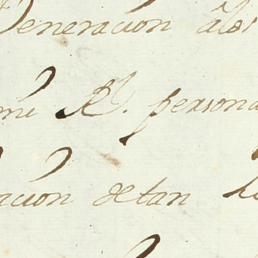 Veneracion alos
mi Rl. persona
acion detan